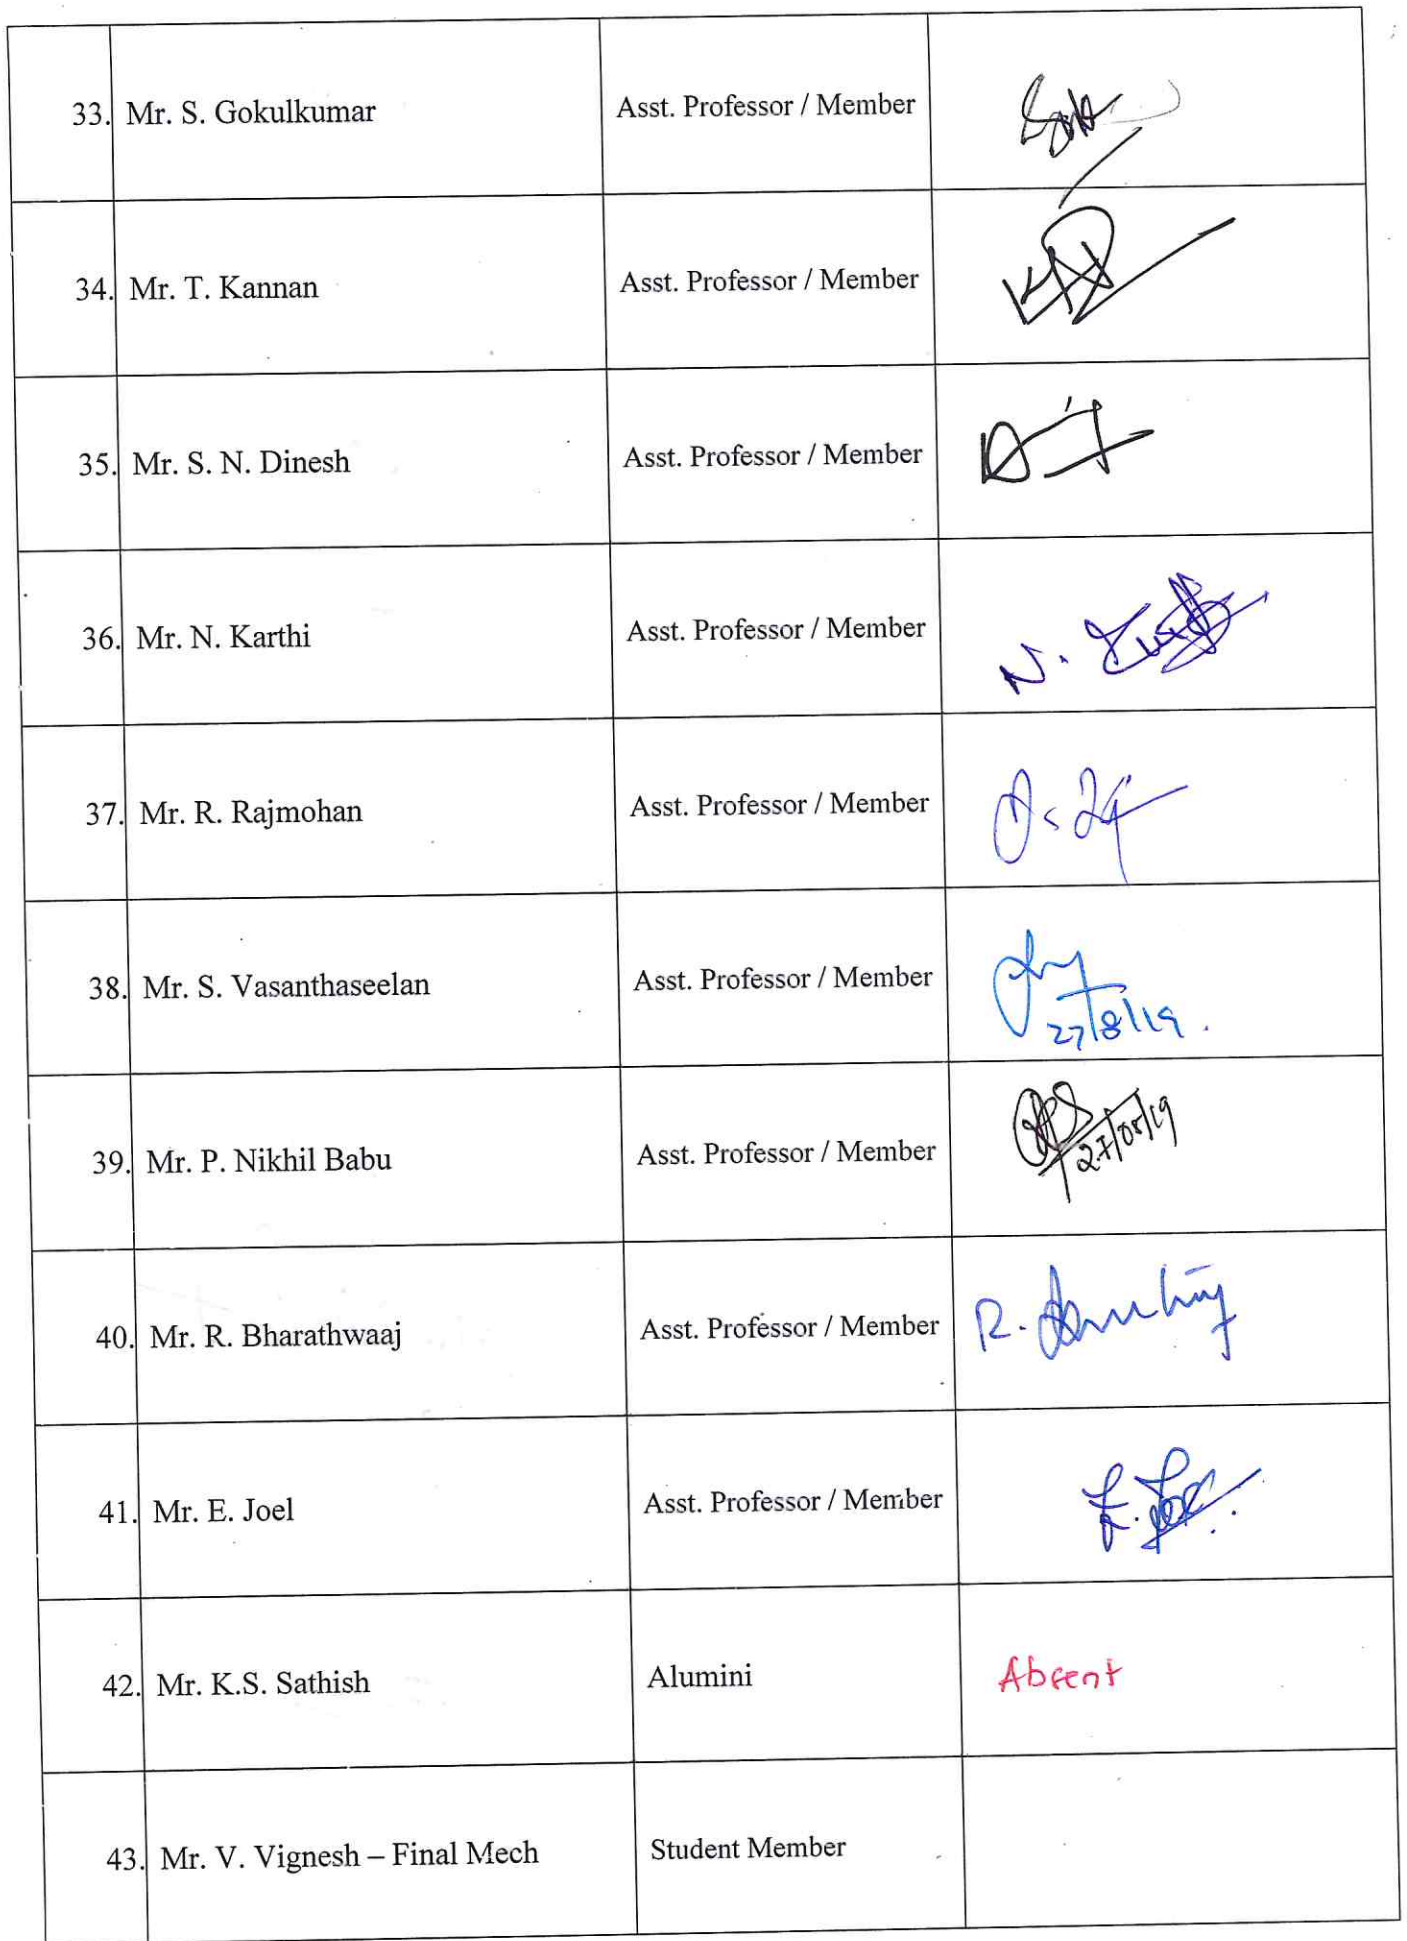 33. Mr. S. Gokulkumar Asst. Professor / Member
34. Mr. T. Kannan Asst. Professor / Member
35. Mr. S. N. Dinesh Asst. Professor / Member
36. Mr. N. Karthi Asst. Professor / Member N.
37. Mr. R. Rajmohan Asst. Professor / Member
38. Mr. S. Vasanthaseelan Asst. Professor / Member
27/8/19.
39. Mr. P. Nikhil Babu Asst. Professor / Member 27/08/19
40. Mr. R. Bharathwaaj Asst. Professor / Member R.
41. Mr. E. Joel Asst. Professor / Member E. Joel
42. Mr. K.S. Sathish Alumini Absent
43. Mr. V. Vignesh – Final Mech Student Member